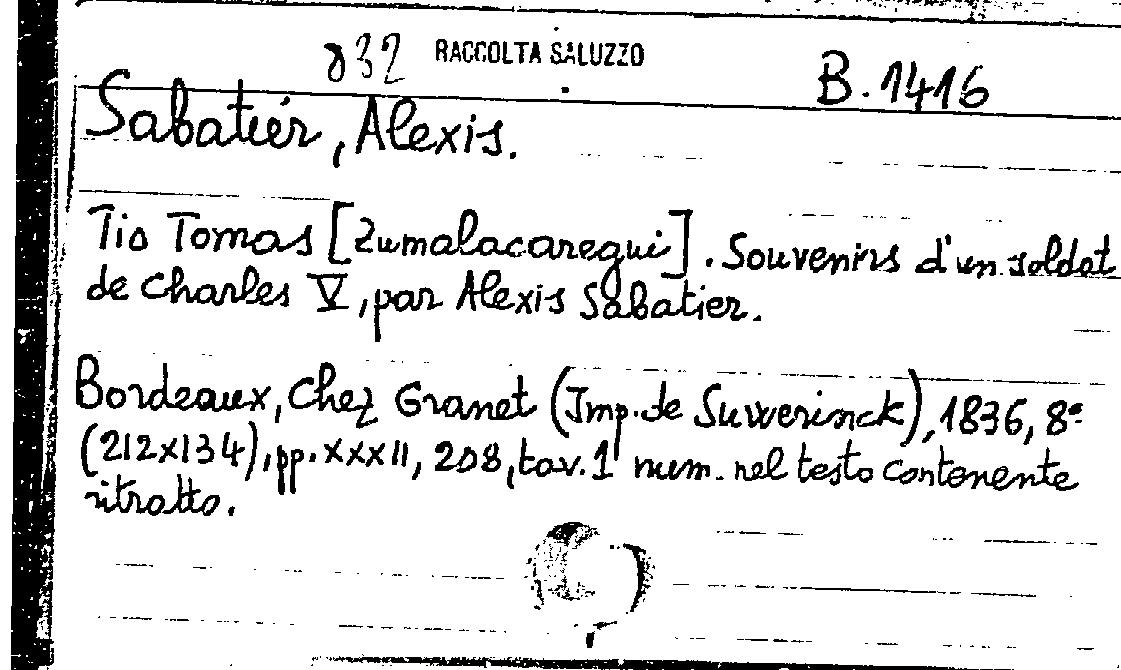 832 RACCOLTA SALUZZO B.1416
Sabatier, Alexis.
Tio Tomas [Zumalacaregui]. Souvenirs d'un soldat
de Charles V, par Alexis Sabatier.
Bordeaux, Chez Granet (Imp. de Suwerinck), 1836, 8º
(212x134), pp. XXXII, 208, tav. 1 num. nel testo contenente
ritratto.